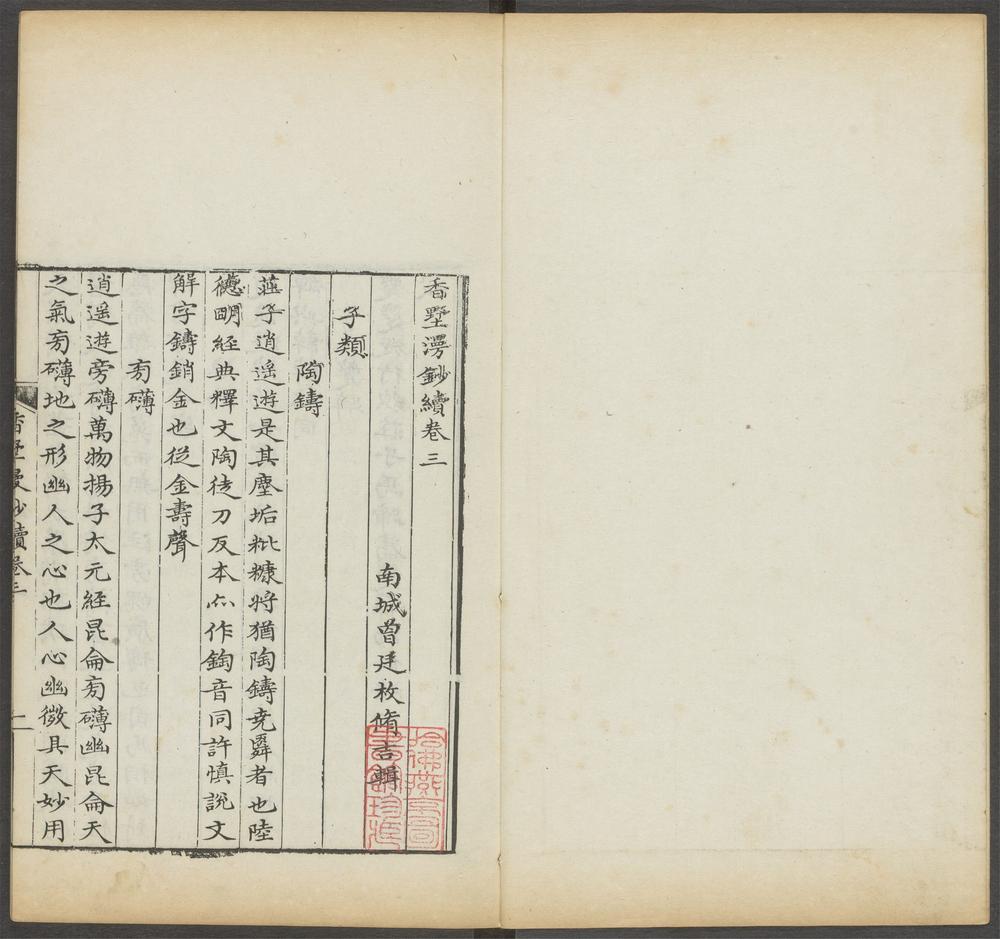 香墅漫鈔續卷三
南城曾廷枚脩吉輯
子類
陶鑄
莊子逍遙遊是其塵垢粃糠將猶陶鑄堯舜者也陸
德明經典釋文陶徒刀反本亦作錭音同許愼說文
解字鑄銷金也從金壽聲
旁礴
逍遥遊旁礴萬物揚子太元經昆侖旁礴幽昆侖天
之氣旁礴地之形幽人之心也人心幽微具天妙用
香墅漫鈔續卷三
一